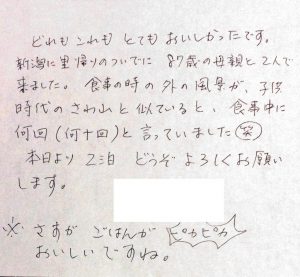 どれもこれも とても おいしかったです。
新潟に里帰りのついでに 87歳の母親と2人で
来ました。 食事の時の外の風景が、子供
時代のさわ山と似ていると、食事中に
何回(何十回)と言っていました 笑
本日より 2泊 どうぞ よろしくお願い
します。
※ さすが ごはんが ピカピカ
おいしいですね。